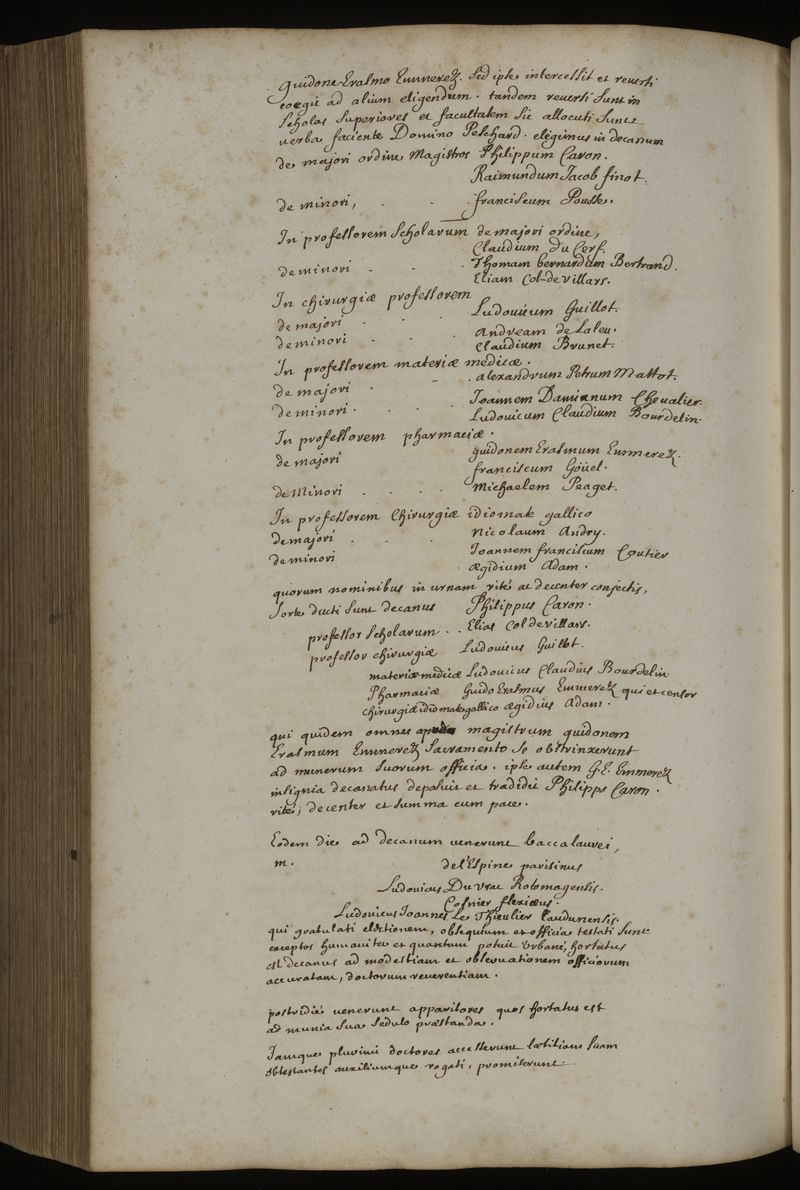 Guidone Erasmo Emmerez. Sed ipse intercessit et reverti
coegit ad alium eligendum. tandem reversi sunt in
Scholas Superiores et facultatem sic allocuti sunt
verba faciente Domino Peschard. elegimus in decanum
de majori ordine Magistros Philippum Caron.
Raimundum Jacob finot.
de minori, . . . franciscum Pousse.
In professorem Scholarum de majori ordine,
Claudium Du Cerf.
Thomam bernardum Bertrand.
de minori . . . Eliam Col-de villars.
In chirurgiæ professorem
de majori . . . Ludovicum Guillot.
Andream de Laleu.
de minori . . . Claudium Brunet.
In professorem materiæ medicæ.
de majori . . . alexandrum Petrum Mattot.
Joannem Damianum Chevalier.
de minori . . . Ludovicum Claudium Bourdelin.
In professorem pharmaciæ.
de majori guidonem Erasmum Emmerez.
franciscum Göüel.
de Minori . . . . Michaelem Peaget.
In professorem Chirurgiæ idiomate gallico
de majori . . . Nicolaum Andry.
Joannem franciscum Coutier
de minori ægidium Adam.
quorum nominibus in urnam rité ac decenter conjectis,
Sorte ducti sunt decanus Philippus Caron.
professor Scholarum . . Elias Col de villars.
professor chirurgiæ Ludovicus Guillot.
materiæ medicæ Ludovicus Claudius Bourdelin
Pharmaciæ Guido Erasmus Emmerez qui et censor
chirurgiæ idiomate gallico ægidius Adam.
qui quidem omnes apud magistrum guidonem
Erasmum Emmerez Sacramento se obstrinxerunt
ad munerum suorum officia. ipse autem G. E. Emmerez
insignia decanatus deposuit et tradidit Philippo Caron.
rité, decenter et summa cum pace.
Eodem die ad decanum venerunt baccalaurei,
m. del'Espine parisinus
Ludovicus Du vrac Rotomagensis.
Cosnier flexiæus.
Ludovicus Joannes Le Thieulier Laudunensis.
qui gratulati electionem, obsequium et officia testati sunt
exceptos humaniter et quantum potuit Urbané, hortatus
est decanus ad modestiam et observationem officiorum
accuratam, doctorum reverentiam.
postridié venerunt apparitores quos hortatus est
ad munia sua sedulo præstanda.
Jamque plurimi doctores accesserunt lætitiam suam
obtestantes auxiliumque rogati, promiserunt.